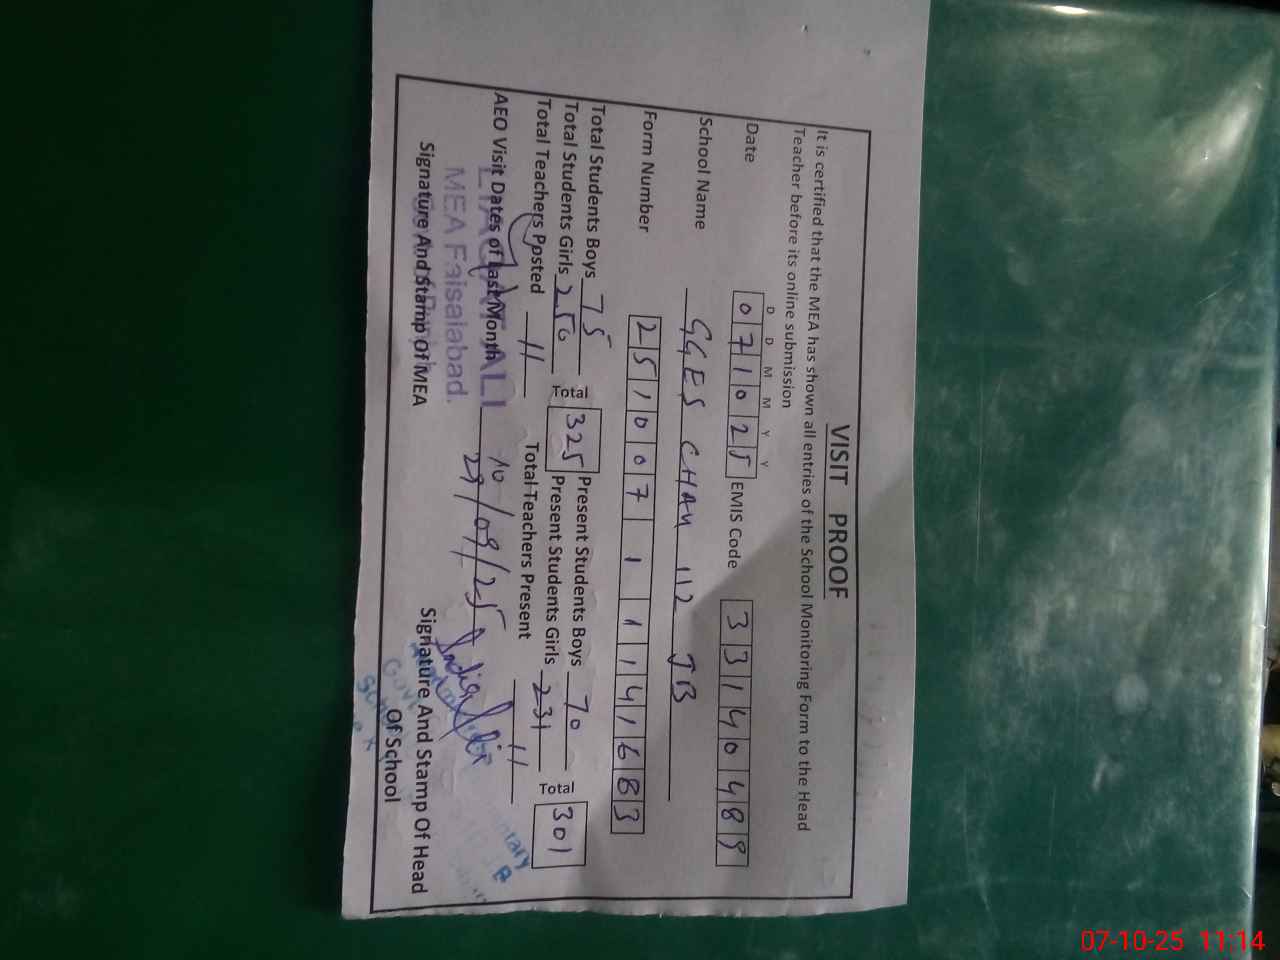 VISIT PROOF
It is certified that the MEA has shown all entries of the School Monitoring Form to the Head
Teacher before its online submission
D D M M Y Y
Date 071025 EMIS Code 33140489
School Name GGES CHAK 112 JB
Form Number 25100711141683
Total Students Boys 75 Present Students Boys 70
Total Students Girls 250 Total 325 Present Students Girls 231 Total 301
Total Teachers Posted 11 Total Teachers Present 11
AEO Visit Dates of Last Month 10 29/09/25
LIAQAT ALI
MEA Faisalabad.
Signature And Stamp Of MEA
Signature And Stamp Of Head
Of School
07-10-25 11:14